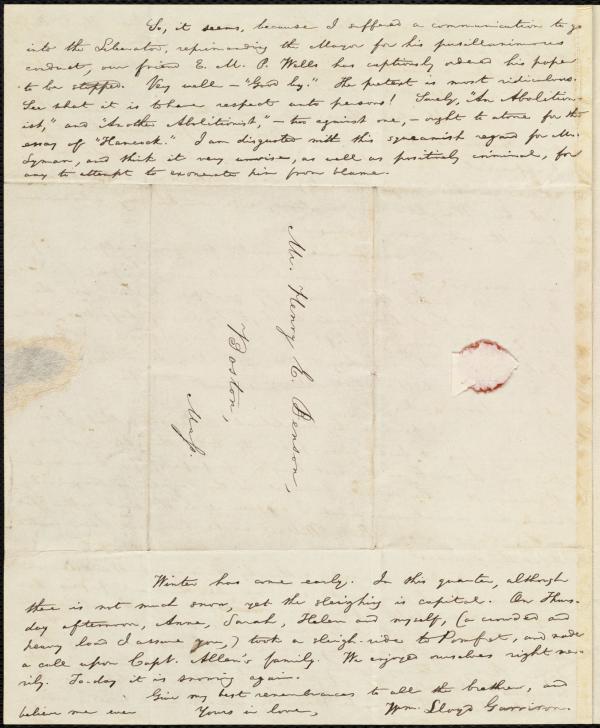 So, it seems, because I suffered a communication to go
into the Liberator, reprimanding the Mayor for his pusillanimous
conduct, our friend E. M. P. Wells has captiously ordered his paper
to be stopped. Very well — "Good by." The pretext is most ridiculous.
See what it is to have respect unto persons! Surely, "An Abolition-
ist," and "Another Abolitionist," — two against one, — ought to atone for the
essay of "Hancock." I am disgusted with this squeamish regard for Mr.
Lyman, and think it very unwise, as well as positively criminal, for
any to attempt to exonerate him from blame.
Mr. Henry E. Benson,
Boston,
Mass.
Winter has come early. In this quarter, although
there is not much snow, yet the sleighing is capital. On Thurs-
day afternoon, Anne, Sarah, Helen and myself, (a crowded and
heavy load I assure you,) took a sleigh-ride to Pomfret, and made
a call upon Capt. Allen's family. We enjoyed ourselves right mer-
rily. To-day it is snowing again.
Give my best remembrances to all the brethren, and
believe me ever Yours in love, Wm. Lloyd Garrison.